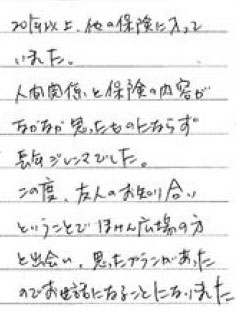 20年以上、他の保険に入って
いました。
人間関係と保険の内容が
なかなか思ったものにならず
長年ジレンマでした。
この度、友人のお知り合い
ということでほけん広場の方
と出会い、思ったプランがあった
のでお世話になることになりました